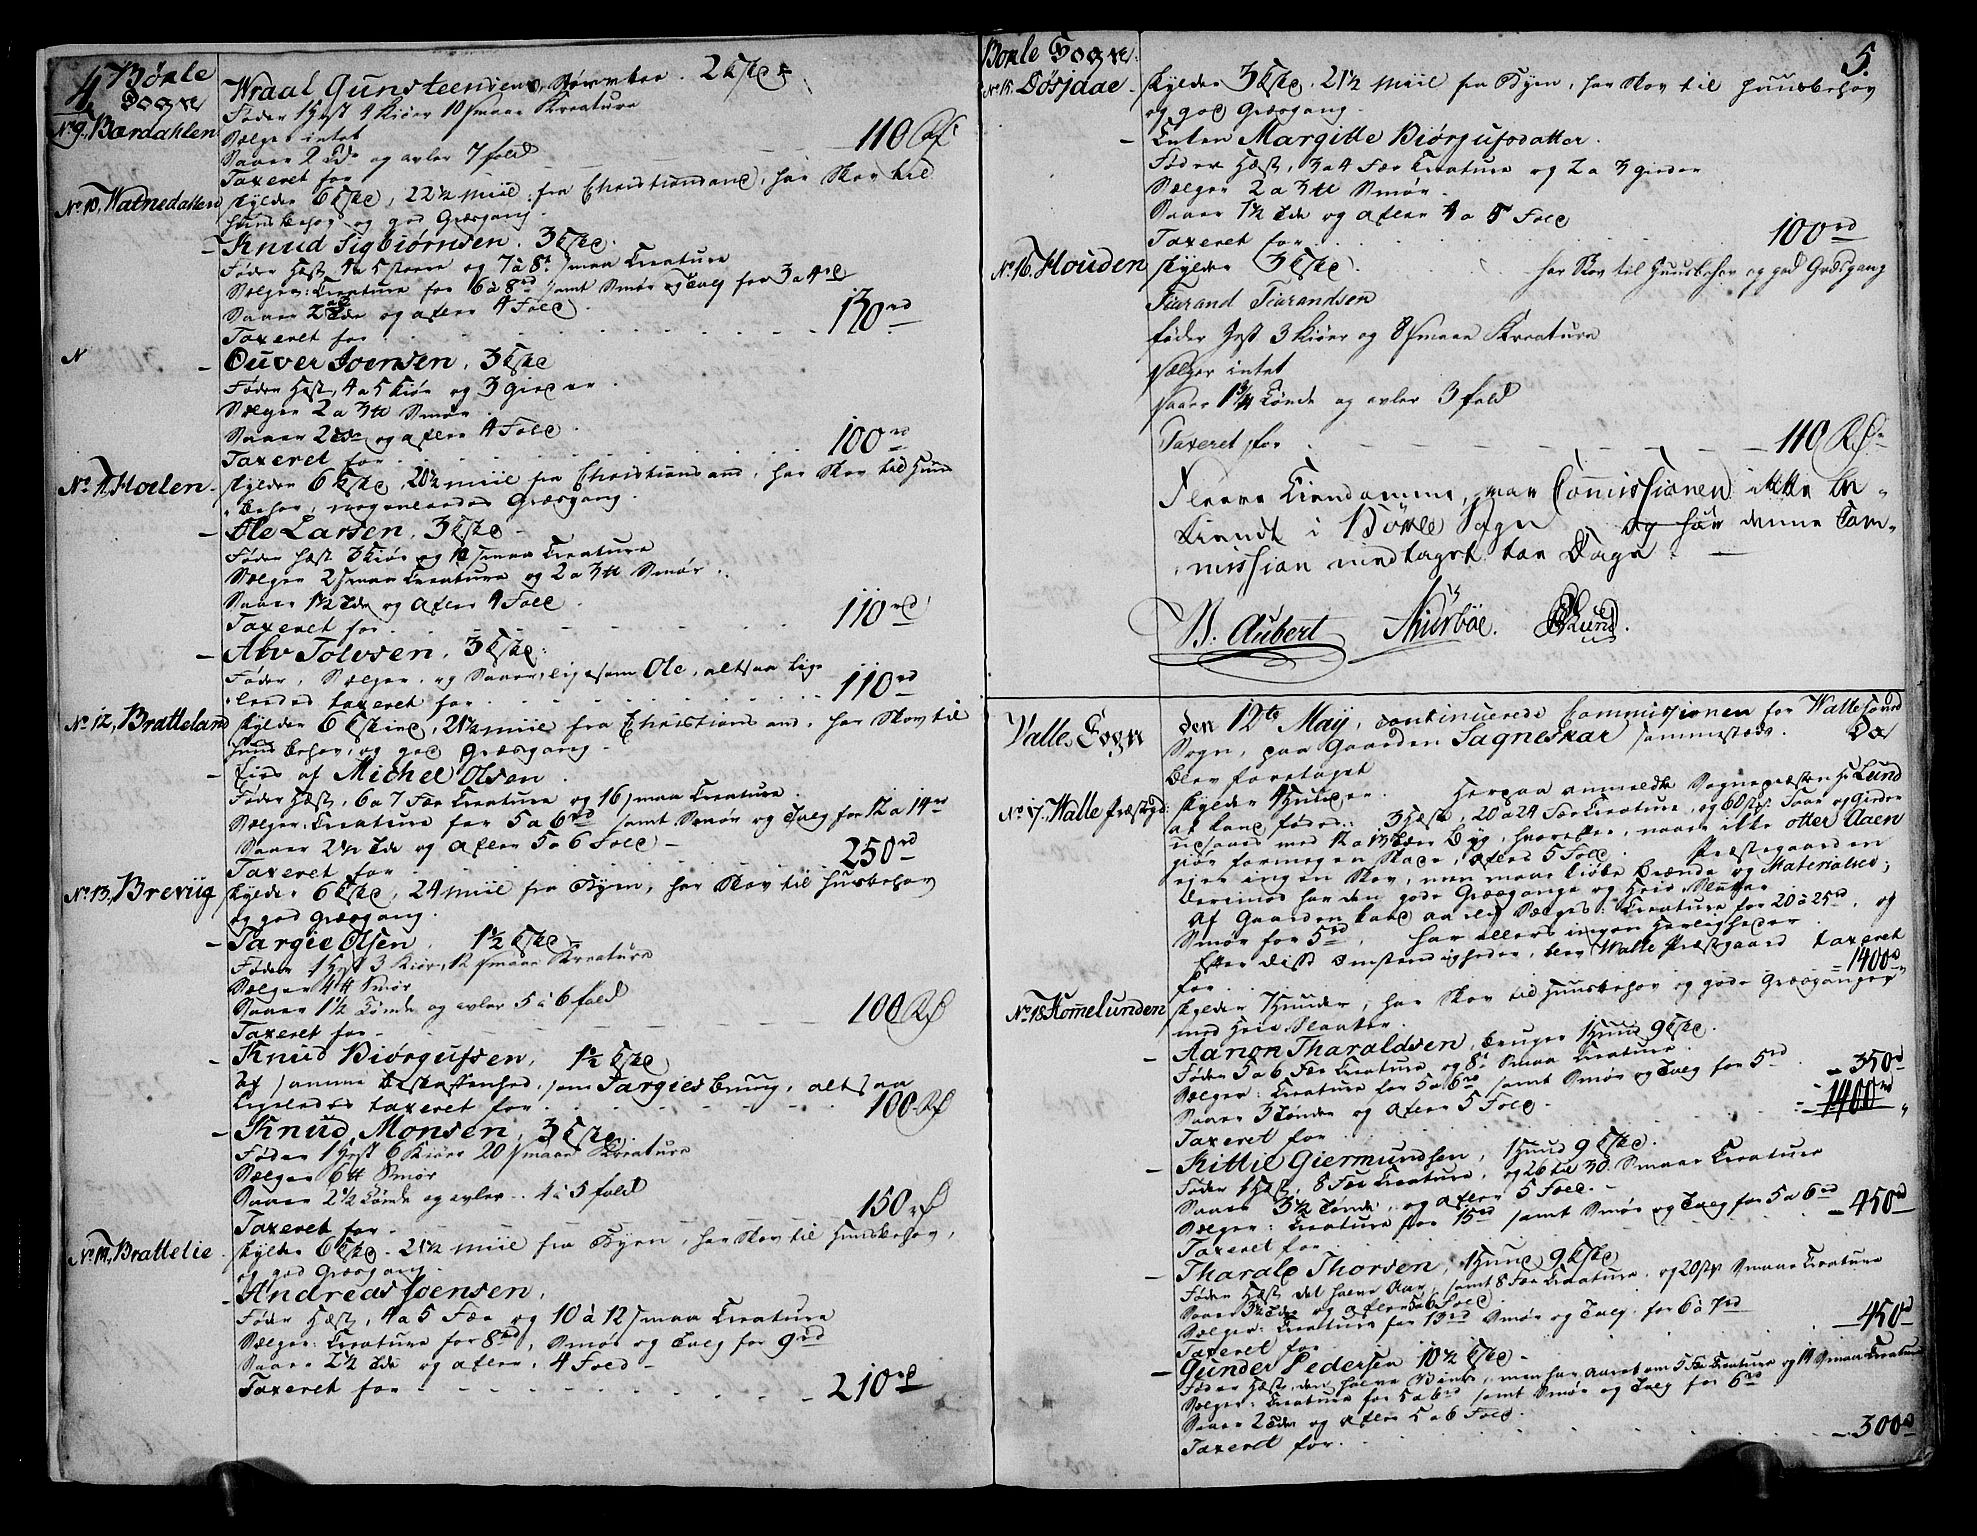 4. Børle
Sogn
No 9, Bærdahlen
Wraal Gunsteensens, 2 Eske
Føder 1 Hest 4 Kiøer 10 smaae Kreature
Sælger intet
Saaer 2 Tde og avler 7 fold
Taxeret for - - - 110 Rd
No 10, Watnedalen
skylder 6 Eske, 22½ Miil fra Christiansand, har Skov til
Huusbehov og god Græsgang.
- Knud Sigbiørnsen. 3 Eske.
Føder Hest, 4 a 5 større og 7 à 8t smaa Creature
Sælger: Creature for 6 à 8rd samt Smør og Talg for 3 a 4rd
Saaer 2 Tde og afler 4 Fold.
Taxeret for - - - 130rd
N
- Ouver Joensen, 3 Eske
Føder Hest, 4 a 5 Kiør og 3 Gieder.
Sælger 2 a 3 tt Smør.
Saaer 2 Tde og afler 4 Fold.
Taxeret for - - - 100rd
No 11, Hoelen
skylder 6 Eske, 20½ Miil fra Christiansand, har Skov til Huus
behov, nogenledes Græsgang.
- Ole Larsen, 3 Eske -
Føder Hest 3 Kiør og 10 smaa Creature
Sælger 2 smaa Creature og 2 a 3 tt Smør.
Saaer 1½ Tde og afler 4 Fold.
Taxeret for - - - 110rd
- Abv Tolvsen, 3 Eske.
Føder, Sælger, og Saaer, ligesom Ole, altsaa lige
ledes taxeret for - - - 110rd
No 12, Bratteland
skylder 6 Eskine, 21½ Miil fra Christiansand, har Skov til
Huusbehov, og god Græsgang -
- Eies af Michel Olsen.
Føder Hest, 6 a 7 Fæ Creature og 16 smaa Creature.
Sælger: Creature for 5 a 6rd samt Smør og Talg for 12 a 14rd
Saaer 2½ Tde og afler 5 a 6 Fold -
Taxeret for - - - 250rd
No 13, Breviig
skylder 6 Eske, 24 Miil fra Byen, har Skov til Huusbehov
og god Græsgang.
- Targie Olsen. 1½ Eske -
Føder 1 Hest 3 Kiør, 12 smaae Kreature
Sælger 4 tt Smør
Saaer 1½ Tønde og avler 5 à 6 fold
Taxeret for - - - 100 Rd
- Knud Biørgufsen, 1½ Eske
af samme beskaffenhed, som Targies brug, altsaa
ligeledes taxeret for - - - 100 Rd
- Knud Monsen, 3 Eske.
Føder 1 Hest 6 Kiøer 20 smaae Kreature
Sælger 6 tt Smør
Saaer 2½ Tønde og avler 4 à 5 fold
Taxeret for - 150 rd
No 14, Brattelie
skylder 6 Eske. 21½ Miil fra Byen, har Skov til Huusbehov,
og god Græsgang.
- Andreas Joensen,
Føder Hest, 4 a 5 Fæ og 10 à 12 smaa Creature
Sælger: Creature for 8rd, Smør og Talg for 9rd
Saaer 2½ Tde og afler, 4 Fold -
Taxeret for - - - 210rd
Børle Sogn. 5.
No 15. Dosjdae
skylder 3 Eske, 21½ Miil fra Byen, har Skov til Huusbehov
og god Græsgang.
- Enken Margitte Biørgufsdatter.
Føder Hest, 3 a 4 Fæ Creature og 2 a 3 Gieder
Sælger 2 a 3 tt Smør.
Saaer 1½ Tde og afler 4 a 5 Fold
Taxeret for - - - 100rd
No 16. Houden
skylder 3 Eske. har Skov til Huusbehov og god Græsgang
Tiarand Tiarandsen
føder Hest 3 Kiøer og 8 smaae Kreature
sælger intet
saaer 1¾ Tønde og avler 3 fold
Taxeret for - - - 110 Rdr
Fleere Eiendomme, var Commissionen ikke be-
kiendt i Børle Sogn og har denne Com-
mission medtaget tre Dage. -
B. Aubert Niersböe. Lund.
Valle Sogn
den 12te May, continuerede Commissionen for Walle hoved
Sogn, paa Gaarden Sagneskar sammesteds. Da
blev foretaget
No 17. Walle Præstegd:
skylder 4 Huder. Herpaa anmeldte Sognepræsten Hr Lund
at kand fødes: 3 Heste, 20 à 24 Fæ Creature, og 60 st. Faar og Gieder
udsaaes med 12 a 13 Tdr Byg, hvorefter, naar ikke otter Aaen
giør formegen Skade, afles 5 Fold. Præstegaarden
eier ingen Skov, men maae kiøbe Brænde og Materialier;
derimod har den gode Græsgange og Heie Slætter
Af Gaarden kand aarlig Sælges: Creature for 20 à 25rd, og
Smør for 5rd. har ellers ingen Herligheder.
Efter disse Omstændigheder, blev Walle Præstegaard taxeret
for - - - 1400rd
No 18 Homelunden
skylder 7 Huder, har Skov til Huusbehov og gode Græsgange
med Heie Slaatter.
- Aanon Tharaldsen, bruger 1 Hud 9 Eske.
Føder 5 a 6 Fæ Creature og 8t Smaa Creature.
Sælger: Creature for 5 a 6rd samt Smør og Talg for 5rd - 350rd
Saaer 3 Tønder og afler 5 Fold. - 1400rd
Taxeret for
- Kittil Giermundsen, 1 Hud 9 Eske.
Føder 1 Hest, 8 Fæ Creature, og 26 til 30 Smaae Creature
Saaer 3½ Tønde, og afler 5 Fold. -
Sælger: Creature for 15rd samt Smør og Talg for 5 a 6rd - 450rd
Taxeret for
- Tharald Thorsen, 1 Hud 9 Eske
Føder Hest, det halve Aar, samt 8 Fæ Creature, og 20 st. Smaae Creature
Saaer 3½ Tde og afler 5 a 6 Fold
Sælger: Creature for 13rd Smør og Talg for 6 à 7rd
Taxeret for - - - 450rd
- Gunder Pedersen 10½ Eske -
Føder Hest, den halve Vinter, men har Aaret om 5 Fæ Creature og 14 Smaae Creature
Sælger: Creature for 5 a 6rd samt Smør og Talg for 6rd
Saaer 2 Tde og afler 5 a 6 Fold.
Taxeret for - - - 300rd